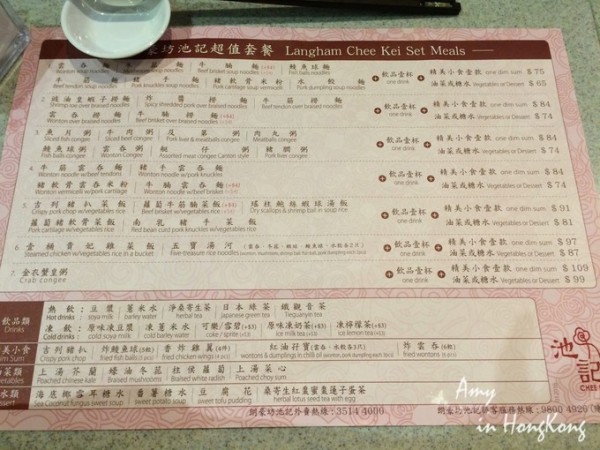 豪坊池記超值套餐 Langham Chee Kei Set Meals
雲吞麵 牛腩麵 鯪魚球麵
Wonton soup noodles Beef brisket soup noodles Fish balls noodles
水餃麵
Pork cartilage soup vermicelli Pork dumpling soup noodles
飲品壹杯 one drink
精美小食壹款 one dim sum $ 75
油菜或糖水 Vegetables or Dessert $ 65
2. 蝦子撈麵 炸醬撈麵 牛筋撈麵
Shrimp roe over braised noodles Spicy shredded pork over braised noodles Beef tendon over braised noodles
雲吞撈麵 牛腩撈麵
Wonton over braised noodles Beef brisket over braised noodles
飲品壹杯 one drink
精美小食壹款 one dim sum $ 84
油菜或糖水 Vegetables or Dessert $ 74
3. 魚片粥 牛肉粥 及第粥 肉丸粥
Sliced fish congee Sliced beef congee Pork liver & meatballs congee Meatballs congee
鯪魚球粥 雲吞粥 艇仔粥 豬膶粥
Fish balls congee Wonton congee Assorted meat congee Canton style Pork liver congee
飲品壹杯 one drink
精美小食壹款 one dim sum $ 84
油菜或糖水 Vegetables or Dessert $ 74
4. 牛筋雲吞麵 豬手雲吞麵
Wonton noodle w/beef tendons Wonton noodle w/pork knuckles
豬軟骨雲吞米粉 牛腩雲吞麵
Wonton vermicelli w/pork cartilage Wonton noodle w/beef brisket
飲品壹杯 one drink
精美小食壹款 one dim sum $ 84
油菜或糖水 Vegetables or Dessert $ 74
5. 吉列豬扒菜飯 蘿蔔牛筋腩菜飯 瑤柱鮑絲蝦球湯飯
Crispy pork chop w/vegetables rice Beef brisket & tendon w/vegetables rice Dry scallops & shrimp ball in soup rice
蘿蔔豬軟骨菜飯 南乳豬手菜飯
Pork cartilage w/vegetables rice Braised pork knuckle w/vegetables rice
飲品壹杯 one drink
精美小食壹款 one dim sum $ 91
油菜或糖水 Vegetables or Dessert $ 81
6. 壹桶貴妃雞菜飯 五寶湯河
Steamed chicken w/vegetables rice in a bucket Five-treasure rice noodles
飲品壹杯 one drink
精美小食壹款 one dim sum $ 97
油菜或糖水 Vegetables or Dessert $ 87
7. 金衣蟹皇粥
Crab congee
飲品壹杯 one drink
精美小食壹款 one dim sum $ 109
油菜或糖水 Vegetables or Dessert $ 99
飲品類 熱飲: 豆漿 薏米水 淨桑寄生茶 日本綠茶 鐵觀音茶
Drinks Hot drinks soya milk barley water herbal tea japanese green tea Tieguanyin tea
凍飲: 原味凍豆漿 凍薏米水 可樂/雪碧(+$3) 原味凍奶茶(+$3) 凍檸檬茶(+$3)
Cold drinks cold soya milk cold barley water coke / sprite ice milk tea ice lemon tea
美小食 吉列豬扒 炸鯪魚球 香炸雞翼 紅油孖寶 炸雲吞
Crispy pork chop fried fish balls fried chicken wings wontons & dumplings in chilli oil fried wontons
油菜類 上湯芥蘭 蠔油冬菇 柱侯蘿蔔 上湯菜心
Poached chinese kale Braised mushroom Braised white radish Poached choy sum
糖水類 海底椰雪耳糖水 番薯糖水 豆腐花 桑寄生紅棗蜜棗蓮子蛋茶
Dessert Sea Coconut fungus sweet soup sweet potato soup sweet tofu pudding herbal lotus seed tea with egg
朗豪坊池記外賣熱線: 3514 4000
9800 4920
池記
CHEE
Amy
in HongKong